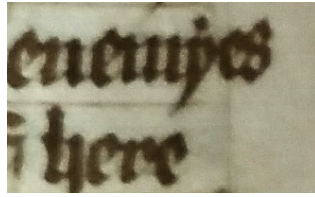 enemyes
here